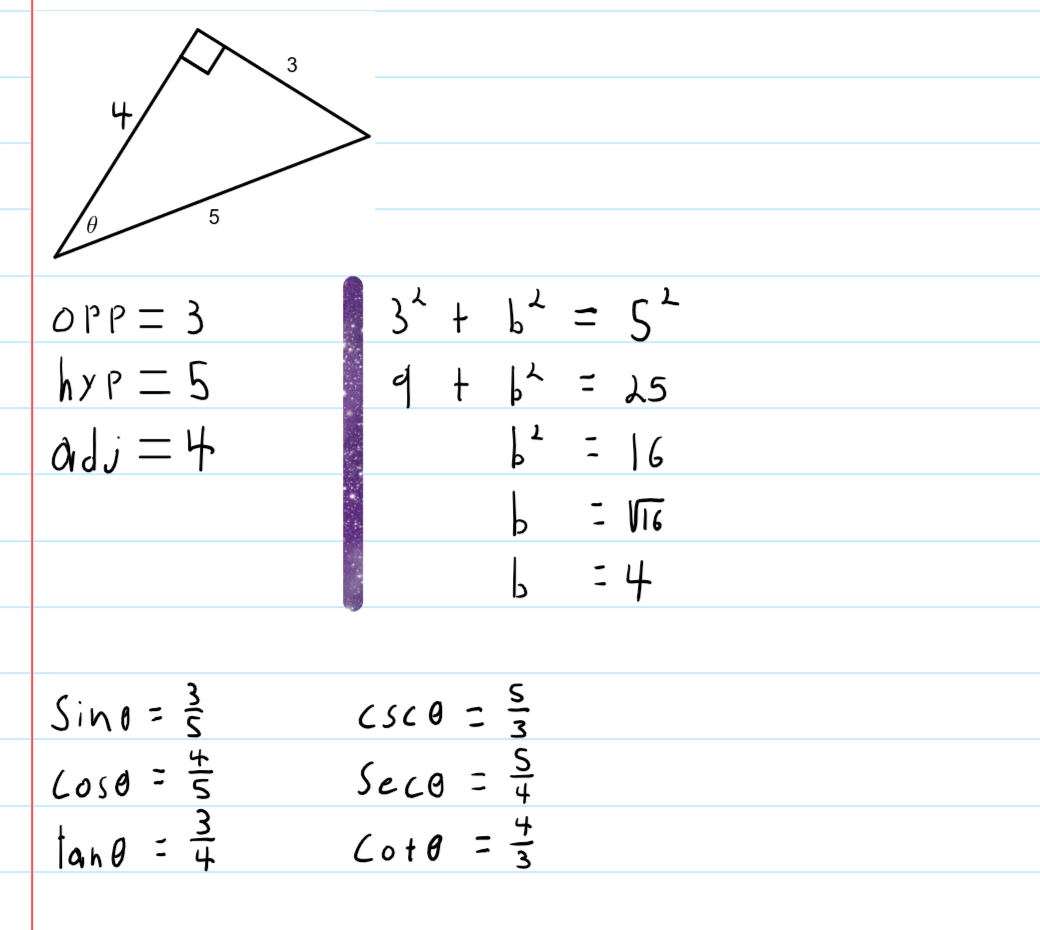 3
4
θ
5
opp = 3
hyp = 5
adj = 4
3² + b² = 5²
9 + b² = 25
b² = 16
b = √16
b = 4
sinθ = 3/5
cosθ = 4/5
tanθ = 3/4
cscθ = 5/3
secθ = 5/4
cotθ = 4/3